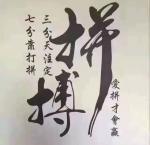 愛拼才會贏
拼搏
三分天注定
七分靠打拼